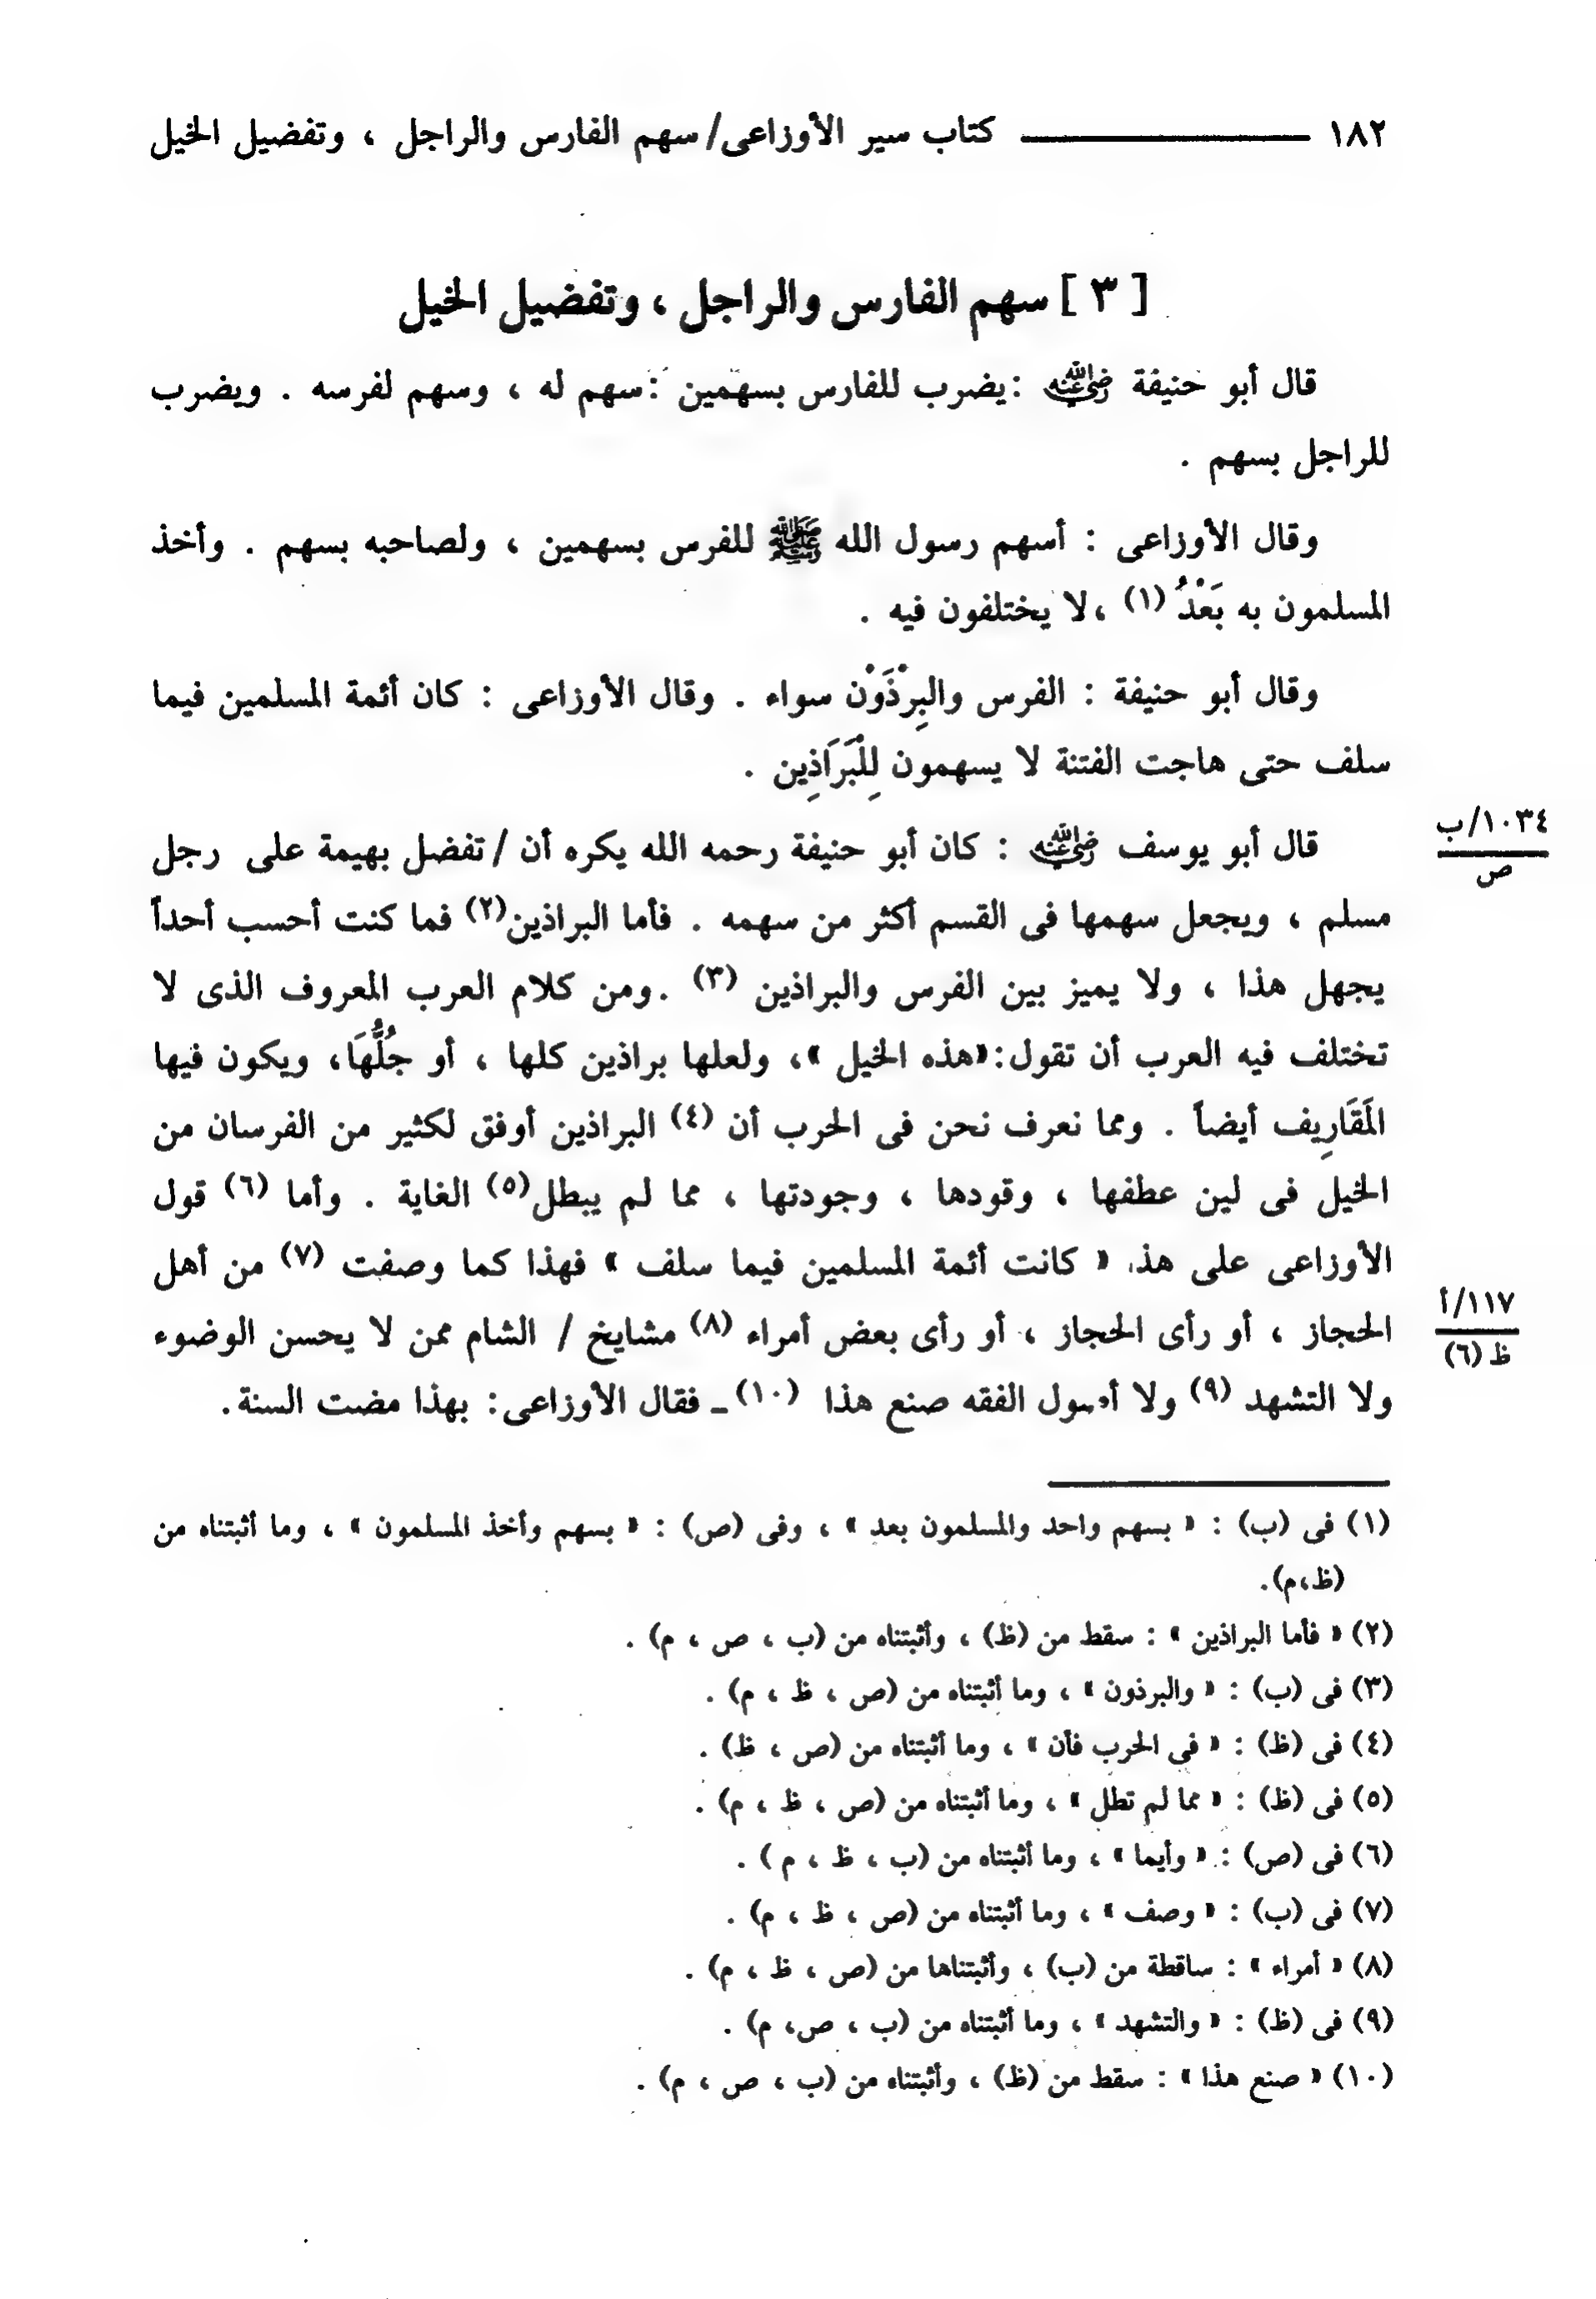 ١٨٢ ــــــــــــــ كتاب سير الأوزاعى/ سهم الفارس والراجل ، وتفضيل الخيل
[ ٣ ] سهم الفارس والراجل ، وتفضيل الخيل
قال أبو حنيفة رضي الله عنه : يضرب للفارس بسهمين : سهم له ، وسهم لفرسه . ويضرب
للراجل بسهم .
وقال الأوزاعى : أسهم رسول الله ﷺ للفرس بسهمين ، ولصاحبه بسهم . وأخذ
المسلمون به بَعْدُ (١) ،لا يختلفون فيه .
وقال أبو حنيفة : الفرس والبِرْذَوْن سواء . وقال الأوزاعى : كان أئمة المسلمين فيما
سلف حتى هاجت الفتنة لا يسهمون لِلْبَرَاذِين .
قال أبو يوسف رضي الله عنه : كان أبو حنيفة رحمه الله يكره أن / تفضل بهيمة على رجل
١٠٣٤/ب
ص
مسلم ، ويجعل سهمها فى القسم أكثر من سهمه . فأما البراذين(٢) فما كنت أحسب أحداً
يجهل هذا ، ولا يميز بين الفرس والبراذين (٣) .ومن كلام العرب المعروف الذى لا
تختلف فيه العرب أن تقول:«هذه الخيل »، ولعلها براذين كلها ، أو جُلُّهَا، ويكون فيها
المَقَارِيف أيضاً . ومما نعرف نحن فى الحرب أن (٤) البراذين أوفق لكثير من الفرسان من
الخيل فى لين عطفها ، وقودها ، وجودتها ، مما لم يبطل(٥) الغاية . وأما (٦) قول
الأوزاعى على هذ « كانت أئمة المسلمين فيما سلف » فهذا كما وصفت (٧) من أهل
الحجاز ، أو رأى الحجاز ، أو رأى بعض أمراء (٨) مشايخ / الشام ممن لا يحسن الوضوء
١١٧/أ
ظ (٦)
ولا التشهد (٩) ولا أصول الفقه صنع هذا (١٠) ـ فقال الأوزاعى: بهذا مضت السنة.
(١) فى (ب) : « بسهم واحد والمسلمون بعد » ، وفى (ص) : « بسهم وأخذ المسلمون » ، وما أثبتناه من
(ظ،م).
(٢) « فأما البراذين » : سقط من (ظ) ، وأثبتناه من (ب ، ص ، م) .
(٣) فى (ب) : « والبرذون » ، وما أثبتناه من (ص ، ظ ، م) .
(٤) فى (ظ) : « فى الحرب فأن » ، وما أثبتناه من (ص ، ظ) .
(٥) فى (ظ) : « مما لم تطل » ، وما أثبتناه من (ص ، ظ ، م) .
(٦) فى (ص) : « وأيما » ، وما أثبتناه من (ب ، ظ ، م ) .
(٧) فى (ب) : « وصف » ، وما أثبتناه من (ص ، ظ ، م) .
(٨) « أمراء » : ساقطة من (ب) ، وأثبتناها من (ص ، ظ ، م) .
(٩) فى (ظ) : « والتشهد » ، وما أثبتناه من (ب ، ص، م) .
(١٠) « صنع هذا » : سقط من (ظ) ، وأثبتناه من (ب ، ص ، م) .